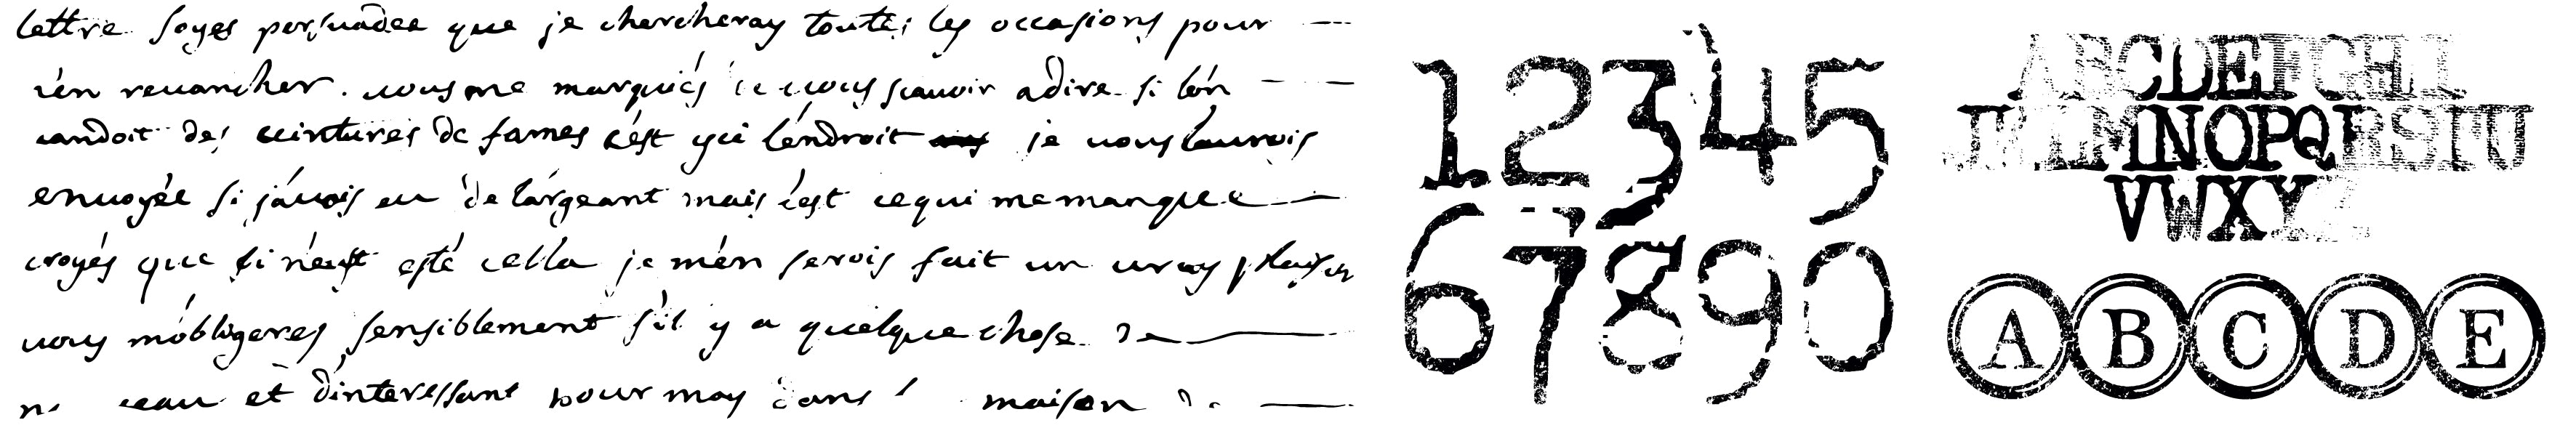 lettre soyes persuadee que je chercheray toutes les occasions pour
rén reuancher. uous me marqués de uous scauoir adire si lón
uandoit des ceintures de fames cést qui léndroit je uous laurois
enuoyée si jáuois eu de lárgeant mais cést ce qui me manque
croyés que si néust esté cella je mén serois fait un uray plaisir
uous móbligeres sensiblement sil y a quelque chose de
eau et dinteressant pour moy dans maison de
12345
67890
ABCDEFGHI
JKLMNOPQRSTU
VWXYZ
A B C D E